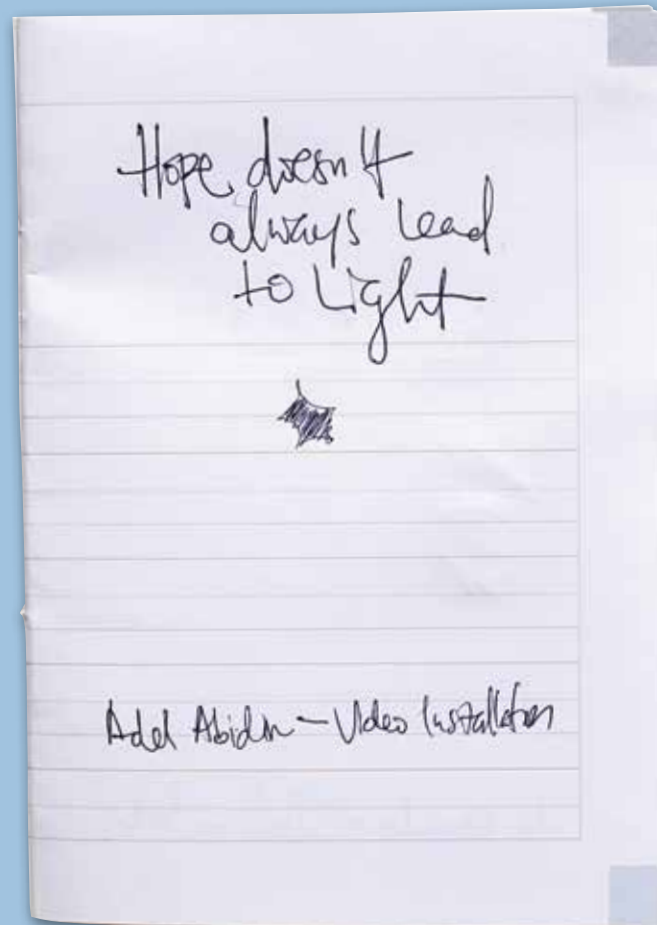 Hope doesn't
always lead
to Light
Adel Abidin – Video Installation